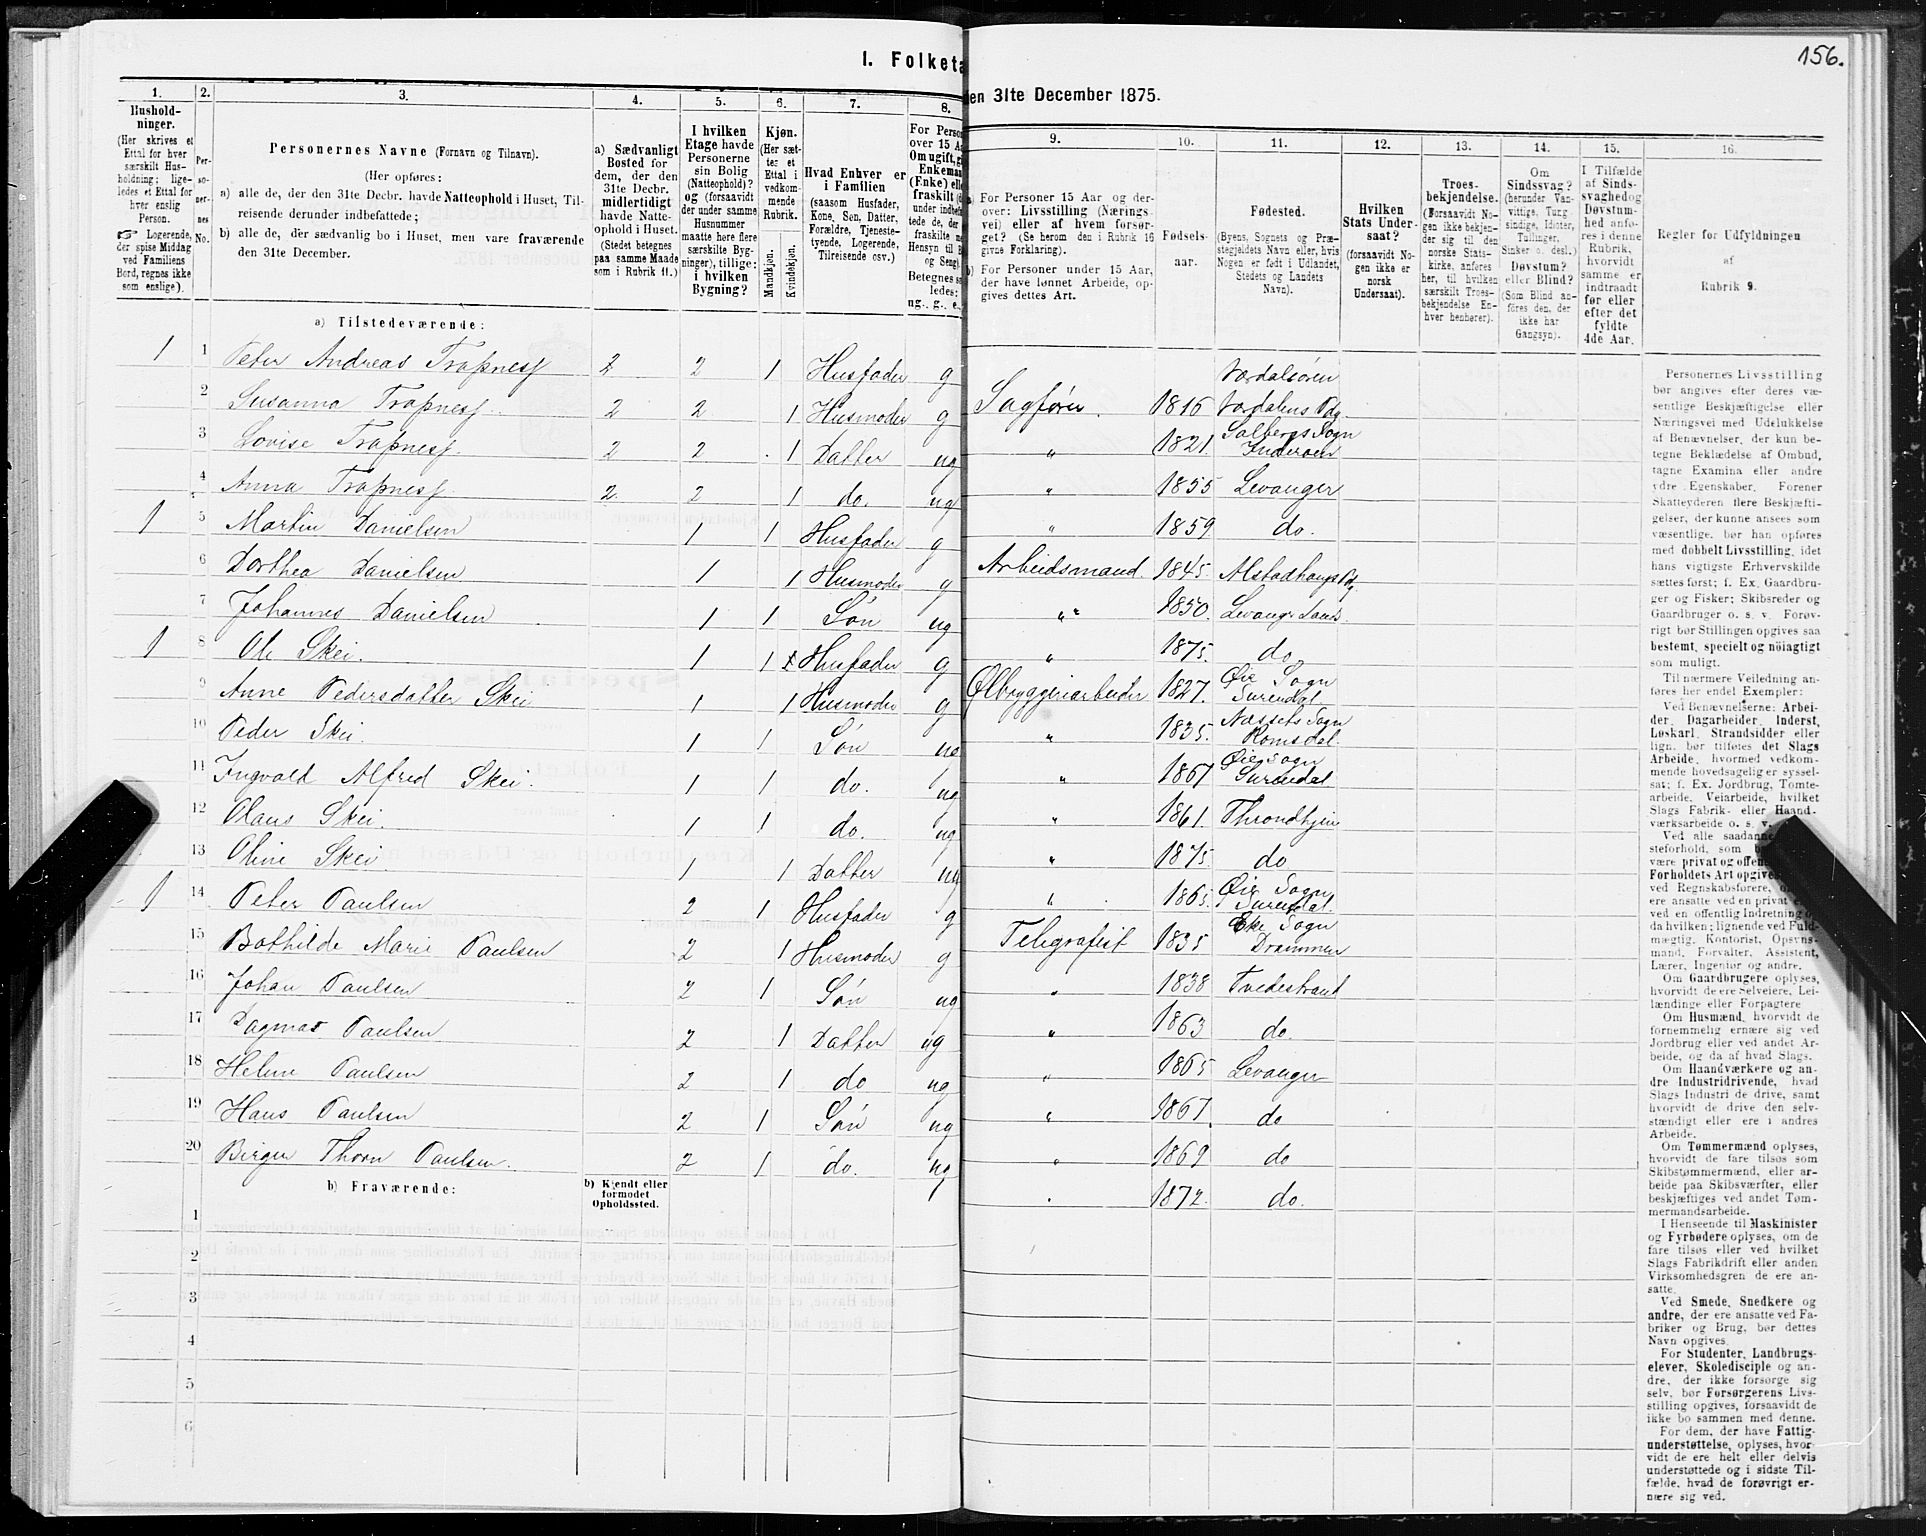 156.
I. Folketa
en 31te December 1875.
1. 2. 3. 4. 5. 6. 7. 8. 9. 10. 11. 12. 13. 14. 15. 16.
Husholdninger.
(Her skrives et Ettal for hver særskilt Husholdning; ligeledes et Ettal for hver enslig Person.
☞ Logerende, der spise Middag ved Familiens Bord, regnes ikke som enslige).
Personernes No.
Personernes Navne (Fornavn og Tilnavn).
(Her opføres:
a) alle de, der den 31te Decbr. havde Natteophold i Huset, Tilreisende derunder indbefattede;
b) alle de, der sædvanlig bo i Huset, men vare fraværende den 31te December.
a) Sædvanligt Bosted for dem, der den 31te Decbr. midlertidigt havde Natteophold i Huset.
(Stedet betegnes paa samme Maade som i Rubrik 11.)
I hvilken Etage havde Personerne sin Bolig (Natteophold)? og (forsaavidt der under samme Husnummer maatte høre flere særskilte Bygninger), tillige: i hvilken Bygning?
Kjøn.
(Her sættes et Ettal i vedkommende Rubrik.
Mandkjøn. Kvindekjøn.
Hvad Enhver er i Familien
(saasom Husfader, Kone, Søn, Datter, Forældre, Tjenestetyende, Logerende, Tilreisende osv.)
For Perso
over 15 A
Om ugift, g
Enkeman
(Enke) elle
fraskilt
under indbef
tede de, de
fraskilte m
Hensyn til B
og Seng).
Betegnes s
ledes:
ug., g., e.,
a) For Personer 15 Aar og derover: Livsstilling (Næringsvei) eller af hvem forsørget? (Se herom den i Rubrik 16 givne Forklaring).
b) For Personer under 15 Aar, der have lønnet Arbeide, opgives dettes Art.
Fødselsaar.
Fødested.
(Byens, Sognets og Præstegjeldets Navn eller, hvis Nogen er født i Udlandet, Stedets og Landets Navn).
Hvilken Stats Undersaat?
(forsaavidt Nogen ikke er norsk Undersaat).
Troesbekjendelse.
(Forsaavidt Nogen ikke bekjender sig til den norske Statskirke, anføres her, til hvilken særskilt Troesbekjendelse Enhver henhører).
Om Sindssvag?
(herunder Vanvittige, Tungsindige, Idioter, Tullinger, Sinker o. desl.)
Døvstum? eller Blind?
(Som Blind anføres den, der ikke har Gangsyn).
I Tilfælde af Sindssvaghed og Døvstumhed anføres i denne Rubrik, hvorvidt samme er indtraadt før eller efter det fyldte 4de Aar.
Regler for Udfyldningen af Rubrik 9.
a) Tilstedeværende:
1 1 Peter Andreas Trapnesj 2 2 1 Husfader g Sagfører. 1816 Værdalsøren Værdalens Pdg.
2 Susanna Trapnesj. 2 2 1 Husmoder g " 1821. Salbergs Sogn Inderøen
3 Lovise Trapnesj. 2 2 1 Datter ug " 1855 Levanger
4 Anna Trapnesj. 2. 2 1 do. ug " 1859 do.
1 5 Martin Danielsen 1 1 Husfader g Arbeidsmand. 1845. Alstadhougs Pdg
6 Dorthea Danielsen 1 1 Husmoder g " 1850. Levanger Sand.
7 Johannes Danielsen 1 1 Søn ug " 1875. do
1 8 Ole Skei. 1 1 Husfader g Ølbryggeriarbeider 1827. Øie Sogn Surendal.
9 Anne Pedersdatter Skei 1 1 Husmoder g " 1835. Næssets Sogn Romsdal.
10 Peder Skei. 1 1 Søn ug " 1867 Øie Sogn Surendal
11 Ingvald Alfred Skei. 1 1 do. ug " 1861. Throndhjem
12 Olaus Skei. 1 1 do. ug " 1875. do
13 Oline Skei 1 1 Datter ug " 1865. Øie Sogn Surendal.
1 14 Peter Paulsen 2 1 Husfader g Telegrafist 1835 Eke Sogn Drammen
15 Bothilde Marie Paulsen 2 1 Husmoder g " 1838 Tvedestrand
16 Johan Paulsen 2 1 Søn ug " 1863 do.
17 Dagmar Paulsen 2 1 Datter ug " 1865 Levanger
18 Helene Paulsen 2 1 do ug " 1867. do
19 Hans Paulsen 2 1 Søn ug " 1869 do
20 Birger Thorn Paulsen. 2 1 do. ug . 1872. do.
b) Fraværende:
b) Kjendt eller formodet Opholdssted.
1
2
3
4
5
6
Personernes Livsstilling bør angives efter deres væsentlige Beskjæftigelse eller Næringsvei med Udelukkelse af Benævnelser, der kun betegne Beklædelse af Ombud, tagne Examina eller andre ydre Egenskaber. Forener Skatteyderen flere Beskjæftigelser, der kunne ansees som væsentlige, bør han opføres med dobbelt Livsstilling, idet hans vigtigste Erhvervskilde sættes først; f. Ex. Gaardbruger og Fisker; Skibsreder og Gaardbruger o. s. v. Forøvrigt bør Stillingen opgives saa bestemt, specielt og nöiagtigt som muligt.
Til nærmere Veiledning anføres her endel Exempler:
Ved Benævnelserne: Arbeider, Dagarbeider, Inderst, Løskarl, Strandsidder eller lign. bør tilføies det Slags Arbeide, hvormed vedkommende hovedsagelig er sysselsat; f. Ex. Jordbrug, Tomtearbeide, Veiarbeide, hvilket Slags Fabrik- eller Haandværksarbeide o. s. v.
Ved alle saadanne
steforhold, som
være privat og offen
Forholdets Art opgives
ved Regnskabsførere,
ere ansatte ved en privat
ved en offentlig Indretning
da hvilken; ligeledes ved Fuldmægtig, Kontorist, Opsynsmand, Forvalter, Assistent, Lærer, Ingeniør og andre.
Om Gaardbrugere oplyses, hvorvidt de ere Selveiere, Leilændinge eller Forpagtere
Om Husmænd, hvorvidt de fornemmelig ernære sig ved Jordbrug eller ved andet Arbeide, og da af hvad Slags.
Om Haandværkere og andre Industridrivende, hvad Slags Industri de drive, samt hvorvidt de drive den selvstændigt eller ere i andres Arbeide.
Om Tømmermænd oplyses, hvorvidt de fare tilsøs som Skibstømmermænd, eller arbeide paa Skibsværfter, eller beskjæftiges ved andet Tømmermandsarbeide.
I Henseende til Maskinister og Fyrbødere oplyses, om de fare tilsøs eller ved hvilket Slags Fabrikdrift eller anden Virksomhedsgren de ere ansatte.
Ved Smede, Snedkere og andre, der ere ansatte ved Fabriker og Brug, bør dettes Navn opgives.
For Studenter, Landbrugselever, Skoledisciple og andre, der ikke forsørge sig selv, bør Forsørgerens Livsstilling opgives, forsaavidt de ikke bo sammen med denne.
For dem, der have Fattigunderstøttelse, oplyses, hvorvidt de ere helt eller delvis understøttede og i sidste Tilfælde, hvad de forøvrigt ernære sig ved.